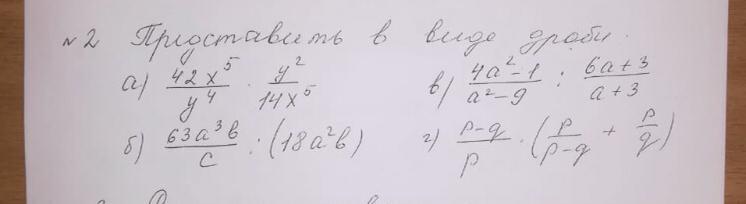 №2 Представить в виде дроби.
а) 42x⁵/y⁴ · y²/14x⁵ в) 4a²-1/a²-9 : 6a+3/a+3
б) 63a³b/c : (18a²b) г) p-q/p · (p/p-q + p/q)